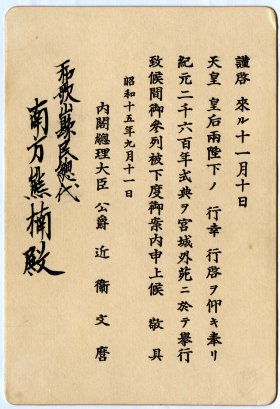 謹啓 來ル十一月十日
天皇 皇后兩陛下ノ 行幸 行啓ヲ仰キ奉リ
紀元二千六百年式典ヲ宮城外苑ニ於テ擧行
致候間御參列被下度御案內申上候 敬具
昭和十五年九月十一日
內閣總理大臣 公爵 近衞文麿
和歌山縣民總代
南方熊楠殿